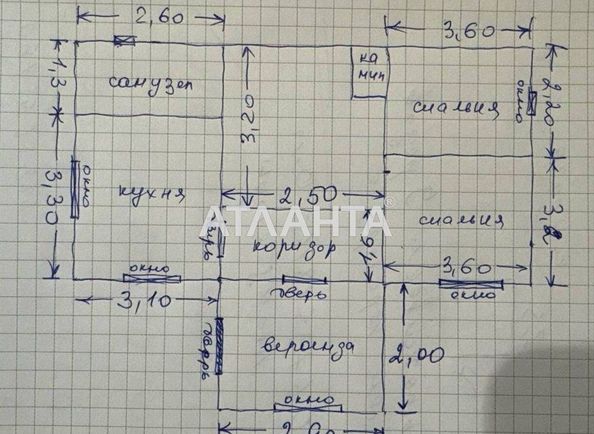 2,60
3,60
1,3
санузел
3,20
ка
мин
спальня
окно
2,20
3,30
окно
кухня
2,50
АТЛАНТА
дверь
коридор
1,6
спальня
3,2
окно
3,10
дверь
3,60
окно
дверь
веранда
2,00
окно